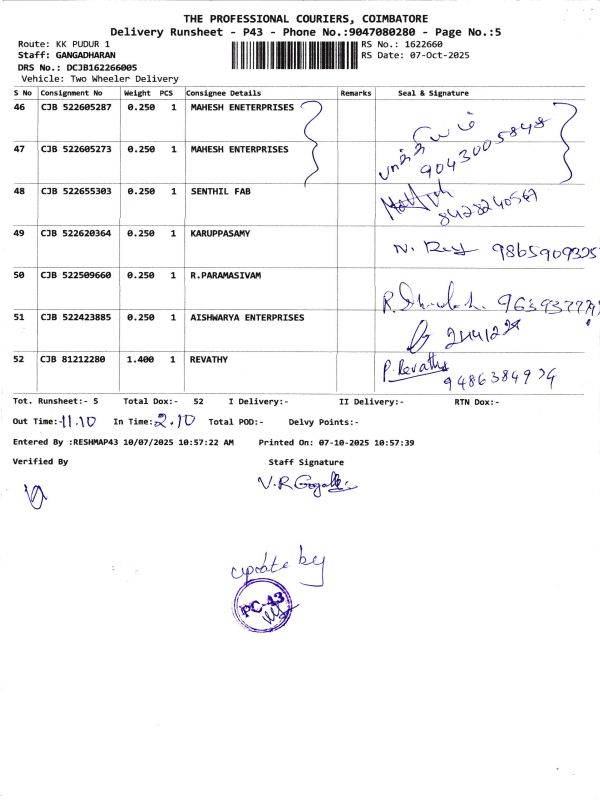 THE PROFESSIONAL COURIERS, COIMBATORE
Delivery Runsheet - P43 - Phone No.:9047080280 - Page No.:5
Route: KK PUDUR 1 RS No.: 1622660
Staff: GANGADHARAN RS Date: 07-Oct-2025
DRS No.: DCJB162266005
Vehicle: Two Wheeler Delivery
S No Consignment No Weight PCS Consignee Details Remarks Seal & Signature
46 CJB 522605287 0.250 1 MAHESH ENETERPRISES
47 CJB 522605273 0.250 1 MAHESH ENTERPRISES 9043005848
48 CJB 522655303 0.250 1 SENTHIL FAB
8428240567
49 CJB 522620364 0.250 1 KARUPPASAMY 9865909325
50 CJB 522509660 0.250 1 R.PARAMASIVAM
51 CJB 522423885 0.250 1 AISHWARYA ENTERPRISES
52 CJB 81212280 1.400 1 REVATHY P. Revathy
Tot. Runsheet:- 5 Total Dox:- 52 I Delivery:- II Delivery:- RTN Dox:-
Out Time:-11.10 In Time:-2.10 Total POD:- Delvy Points:-
Entered By :RESHMAP43 10/07/2025 10:57:22 AM Printed On: 07-10-2025 10:57:39
Verified By Staff Signature
update by
PC-43